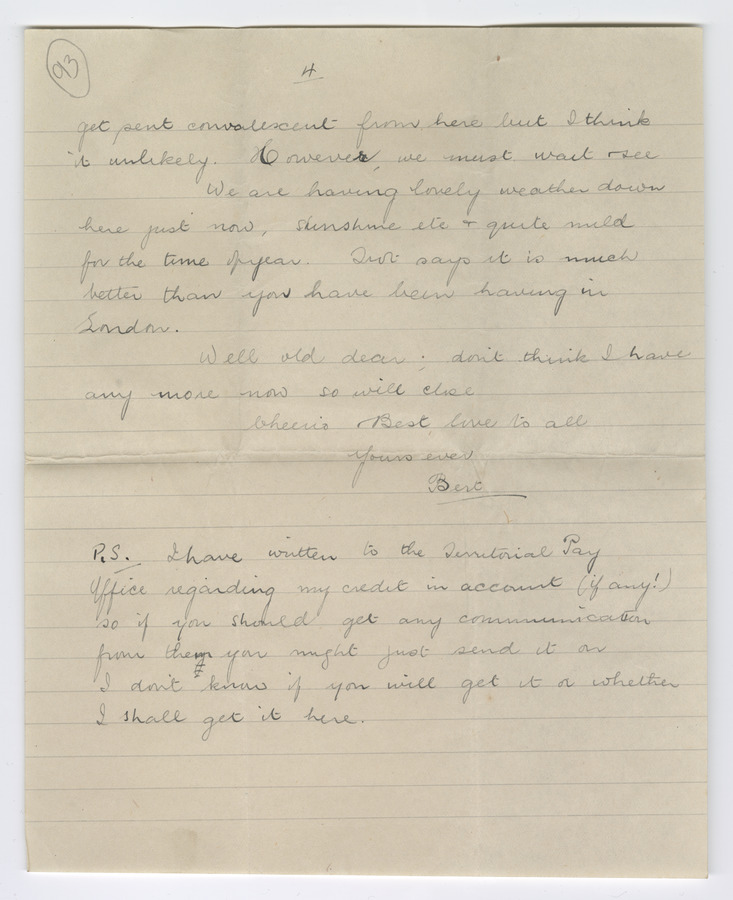 93
4
get sent convalescent from here but I think
it unlikely. However, we must wait & see
We are having lovely weather down
here just now, sunshine etc & quite mild
for the time of year. says it is much
better than you have been having in
London.
Well old dear; don't think I have
any more now so will close
Cheerio & Best love to all
Yours ever
Bert
P.S. I have written to the Territorial Pay
Office regarding my credit in account (if any!)
so if you should get any communication
from them you might just send it on
I don't know if you will get it or whether
I shall get it here.